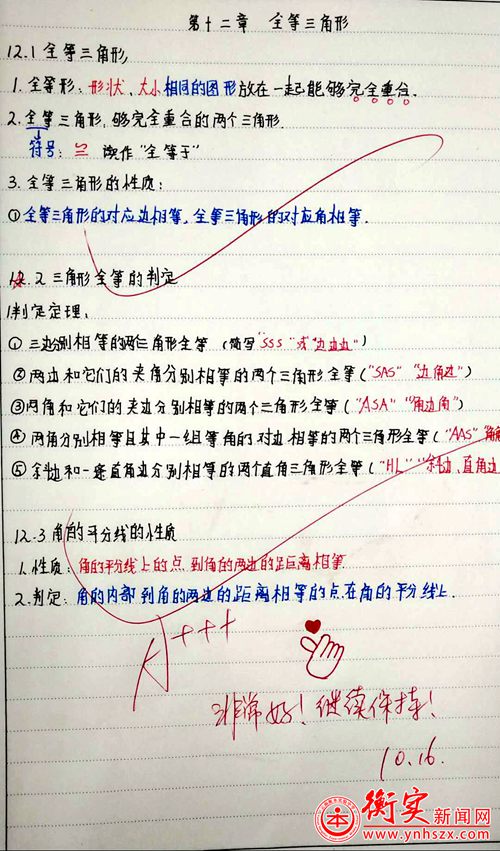 第十二章 全等三角形
12.1 全等三角形
1. 全等形：形状、大小相同的图形放在一起能够完全重合.
2. 全等三角形：够完全重合的两个三角形.
符号：≌ 读作"全等于"
3. 全等三角形的性质：
①全等三角形的对应边相等，全等三角形的对应角相等.
12.2 三角形全等的判定
判定定理：
① 三边分别相等的两三角形全等（简写"SSS"或"边边边"）
②两边和它们的夹角分别相等的两个三角形全等（"SAS" "边角边"）
③两角和它们的夹边分别相等的两个三角形全等（"ASA" "角边角"）
④ 两角分别相等且其中一组等角的对边相等的两个三角形全等（"AAS" "角角
⑤斜边和一条直角边分别相等的两个直角三角形全等（"HL" "斜边、直角边
12.3 角的平分线的性质
1. 性质：角的平分线上的点到角的两边的距离相等
2. 判定：角的内部到角的两边的距离相等的点在角的平分线上.
A+++
非常好！继续保持！
10.16.
衡实新闻网
www.ynhszx.com